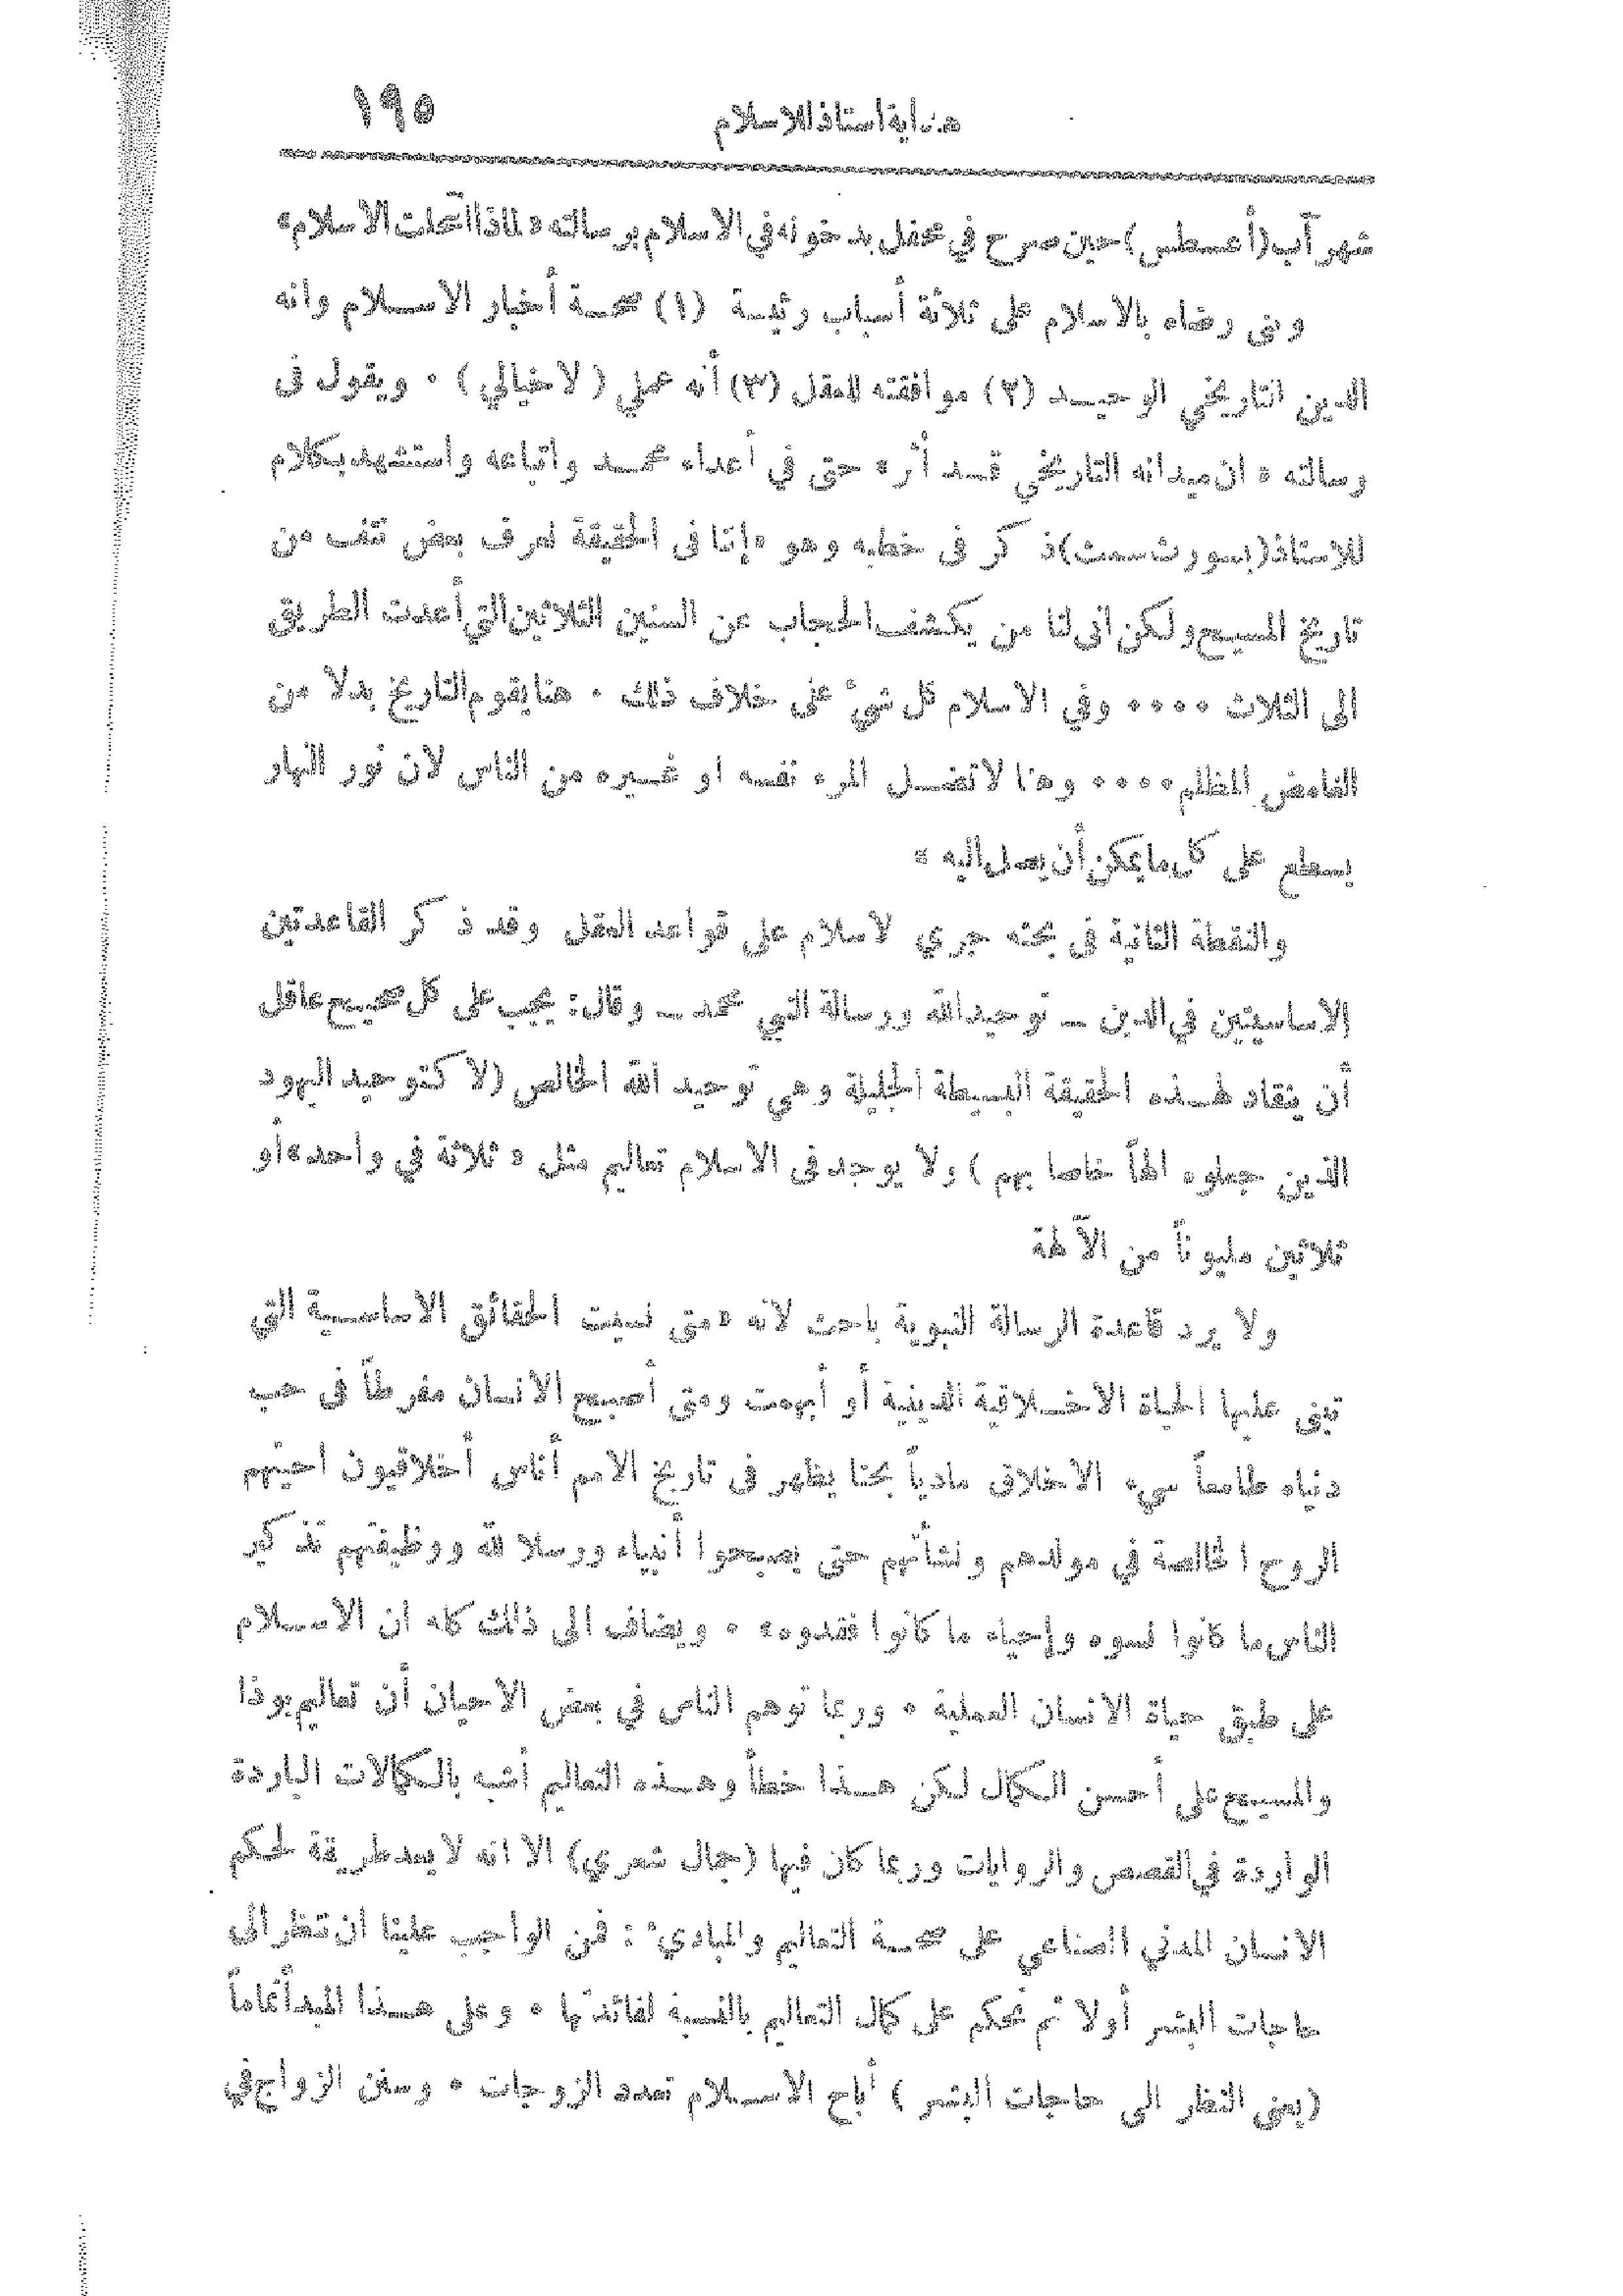 ١٩٥ هداية استاذ للاسلام
شهر آب (أغسطس) حين صرح في محفل بدخوله في الاسلام برسالته «لماذا انتحلت الاسلام»
وبنى رضاه بالاسلام على ثلاثة أسباب رئيسة (١) صحة أخبار الاسلام وانه
الدين التاريخي الوحيد (٢) موافقته للعقل (٣) أنه عملي (لاخيالي) . ويقول في
رسالته «ان ميدانه التاريخي قد أثر» حتى في أعداء محمد واتباعه واستشهد بكلام
للاستاذ (بسورث سمث) ذكر في خطبه وهو «إننا في الحقيقة نعرف بعض نتف من
تاريخ المسيح ولكن انى لنا من يكشف الحجاب عن السنين الثلاثين التي أعدت الطريق
الى الثلاث .... وفي الاسلام كل شيء على خلاف ذلك . هنا يقوم التاريخ بدلا من
الغامض المظلم .... وهنا لا تضل المرء نفسه او غيره من الناس لان نور النهار
يسطع على كل ما يمكن أن يصل اليه »
والنقطة الثانية في بحثه جري الاسلام على قواعد العقل وقد ذكر القاعدتين
الاساسيتين في الدين ـ توحيد الله ورسالة النبي محمد ـ وقال: يجب على كل صحيح عاقل
أن ينقاد لهذه الحقيقة البسيطة الجليلة وهي توحيد الله الخالص (لا كتوحيد اليهود
الذين جعلوه الهاً خاصا بهم ) ولا يوجد في الاسلام تعاليم مثل «ثلاثة في واحد» أو
ثلاثين مليوناً من الآلهة
ولا يرد قاعدة الرسالة النبوية باحث لانه «متى نسيت الحقائق الاساسية التي
تبنى عليها الحياة الاخلاقية الدينية أو أبهمت ومتى أصبح الانسان مفرطاً في حب
دنياه طامعاً سيء الاخلاق مادياً بحتا يظهر في تاريخ الامم أناس أخلاقيون احيتهم
الروح الخالصة في مولدهم ونشأتهم حتى يصبحوا أنبياء ورسلا لله ووظيفتهم تذكير
الناس ما كانوا نسوه وإحياء ما كانوا فقدوه» . ويضاف الى ذلك كله ان الاسلام
على طبق حياة الانسان العملية . وربما توهم الناس في بعض الاحيان أن تعاليم بوذا
والمسيح على أحسن الكمال لكن هذا خطأ وهذه التعاليم أشبه بالكمالات الباردة
الواردة في القصص والروايات وربما كان فيها (جمال شعري) الا انه لا يعد طريقة لحكم
الانسان المدني الصناعي على صحة التعاليم والمبادئ : فمن الواجب علينا ان ننظر الى
حاجات البشر أولا ثم نحكم على كمال التعاليم بالنسبة لفائدتها . وعلى هذا المبدأ تماماً
(يعني النظر الى حاجات البشر ) أباح الاسلام تعدد الزوجات . وسنن الزواج في